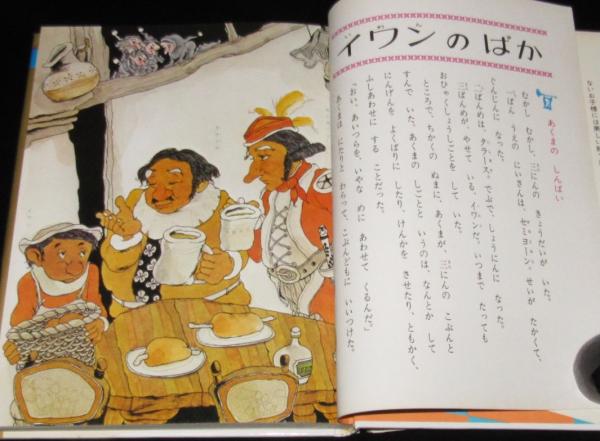 イワンのばか
いわん
あくまの しんぱい
むかし むかし、三にんの きょうだいが いた。
一ばん うえの にいさんは、セミョーン。せいが たかくて、
ぐんじんに なった。
二ばんめは、タラース。でぶで、しょうにんに なった。
三ばんめが、やせて いる、イワンだ。いつまで たっても
おひゃくしょうしごとを して いた。
ところで、ちかくの ぬまに、あくまが、三にんの こぶんと
すんで いた。あくまの しごとと いうのは、なんとか して
にんげんを、よくばりに したり、けんかを させたり、ともかく、
ふしあわせに する ことだった。
「おい、あいつらを、いやな めに あわせて くるんだ。」
あくまは にたりと わらって、こぶんどもに いいつけた。